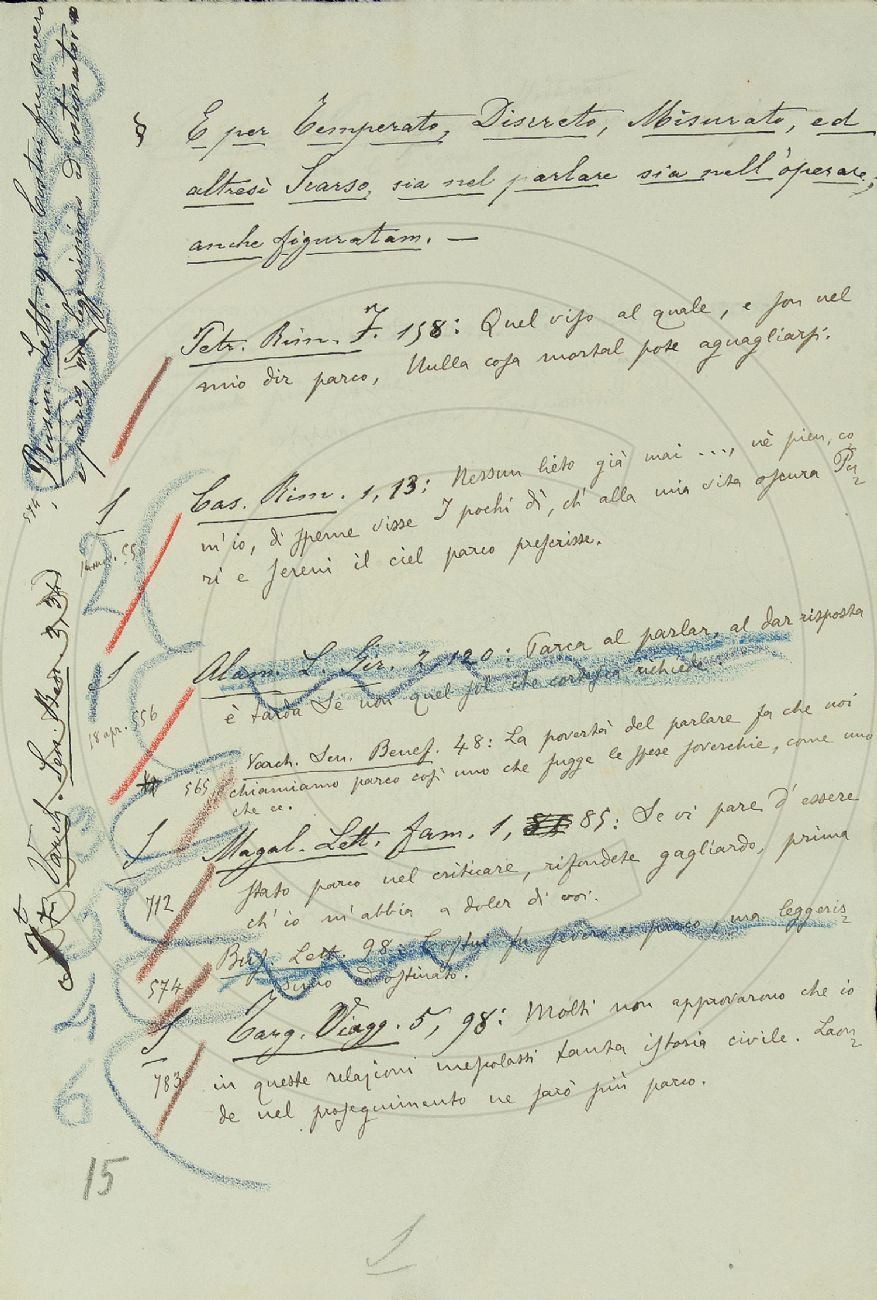 § E per Temperato, Discreto, Misurato, ed
altresì Scarso, sia nel parlare sia nell'operare;
anche figuratam. —
Petr. Rim. F. 158: Quel viso al quale, e son nel
mio dir parco, Nulla cosa mortal pote aguagliarsi.
Cas. Rim. 1, 13: Nessun lieto già mai ..., nè pien, co
m'io, di speme visse I pochi dì, ch'alla mia vita oscura Pu
ri e sereni il ciel parco prescrisse.
Alam. L. Gir. 2, 120: Parca al parlar, al dar risposta
è tarda Se non quel sol che cortesia richiede.
565 Varch. Sen. Benef. 48: La povertà del parlare fa che noi
chiamiamo parco così uno che fugge le spese soverchie, come uno
che ec.
Magal. Lett. fam. 1, 85: Se vi pare d'essere
stato parco nel criticare, rifondete gagliardo, prima
ch'io m'abbia a doler di voi.
Bus. Lett. 98: Costui fu severo e parco, ma leggeris
simo ed ostinato.
Targ. Viagg. 5, 98: Molti non approvarono che io
in queste relazioni mescolassi tanta istoria civile. Laon
de nel proseguimento ne sarò più parco.
S
S
18 apr. 556
S
712
574
S
783
2
3
5
6
15
574
Busin. Lett. 98: Costui fu severo
e parco, ma leggerissimo ed ostinato.
Varch. Sen. Ben. 3, 34